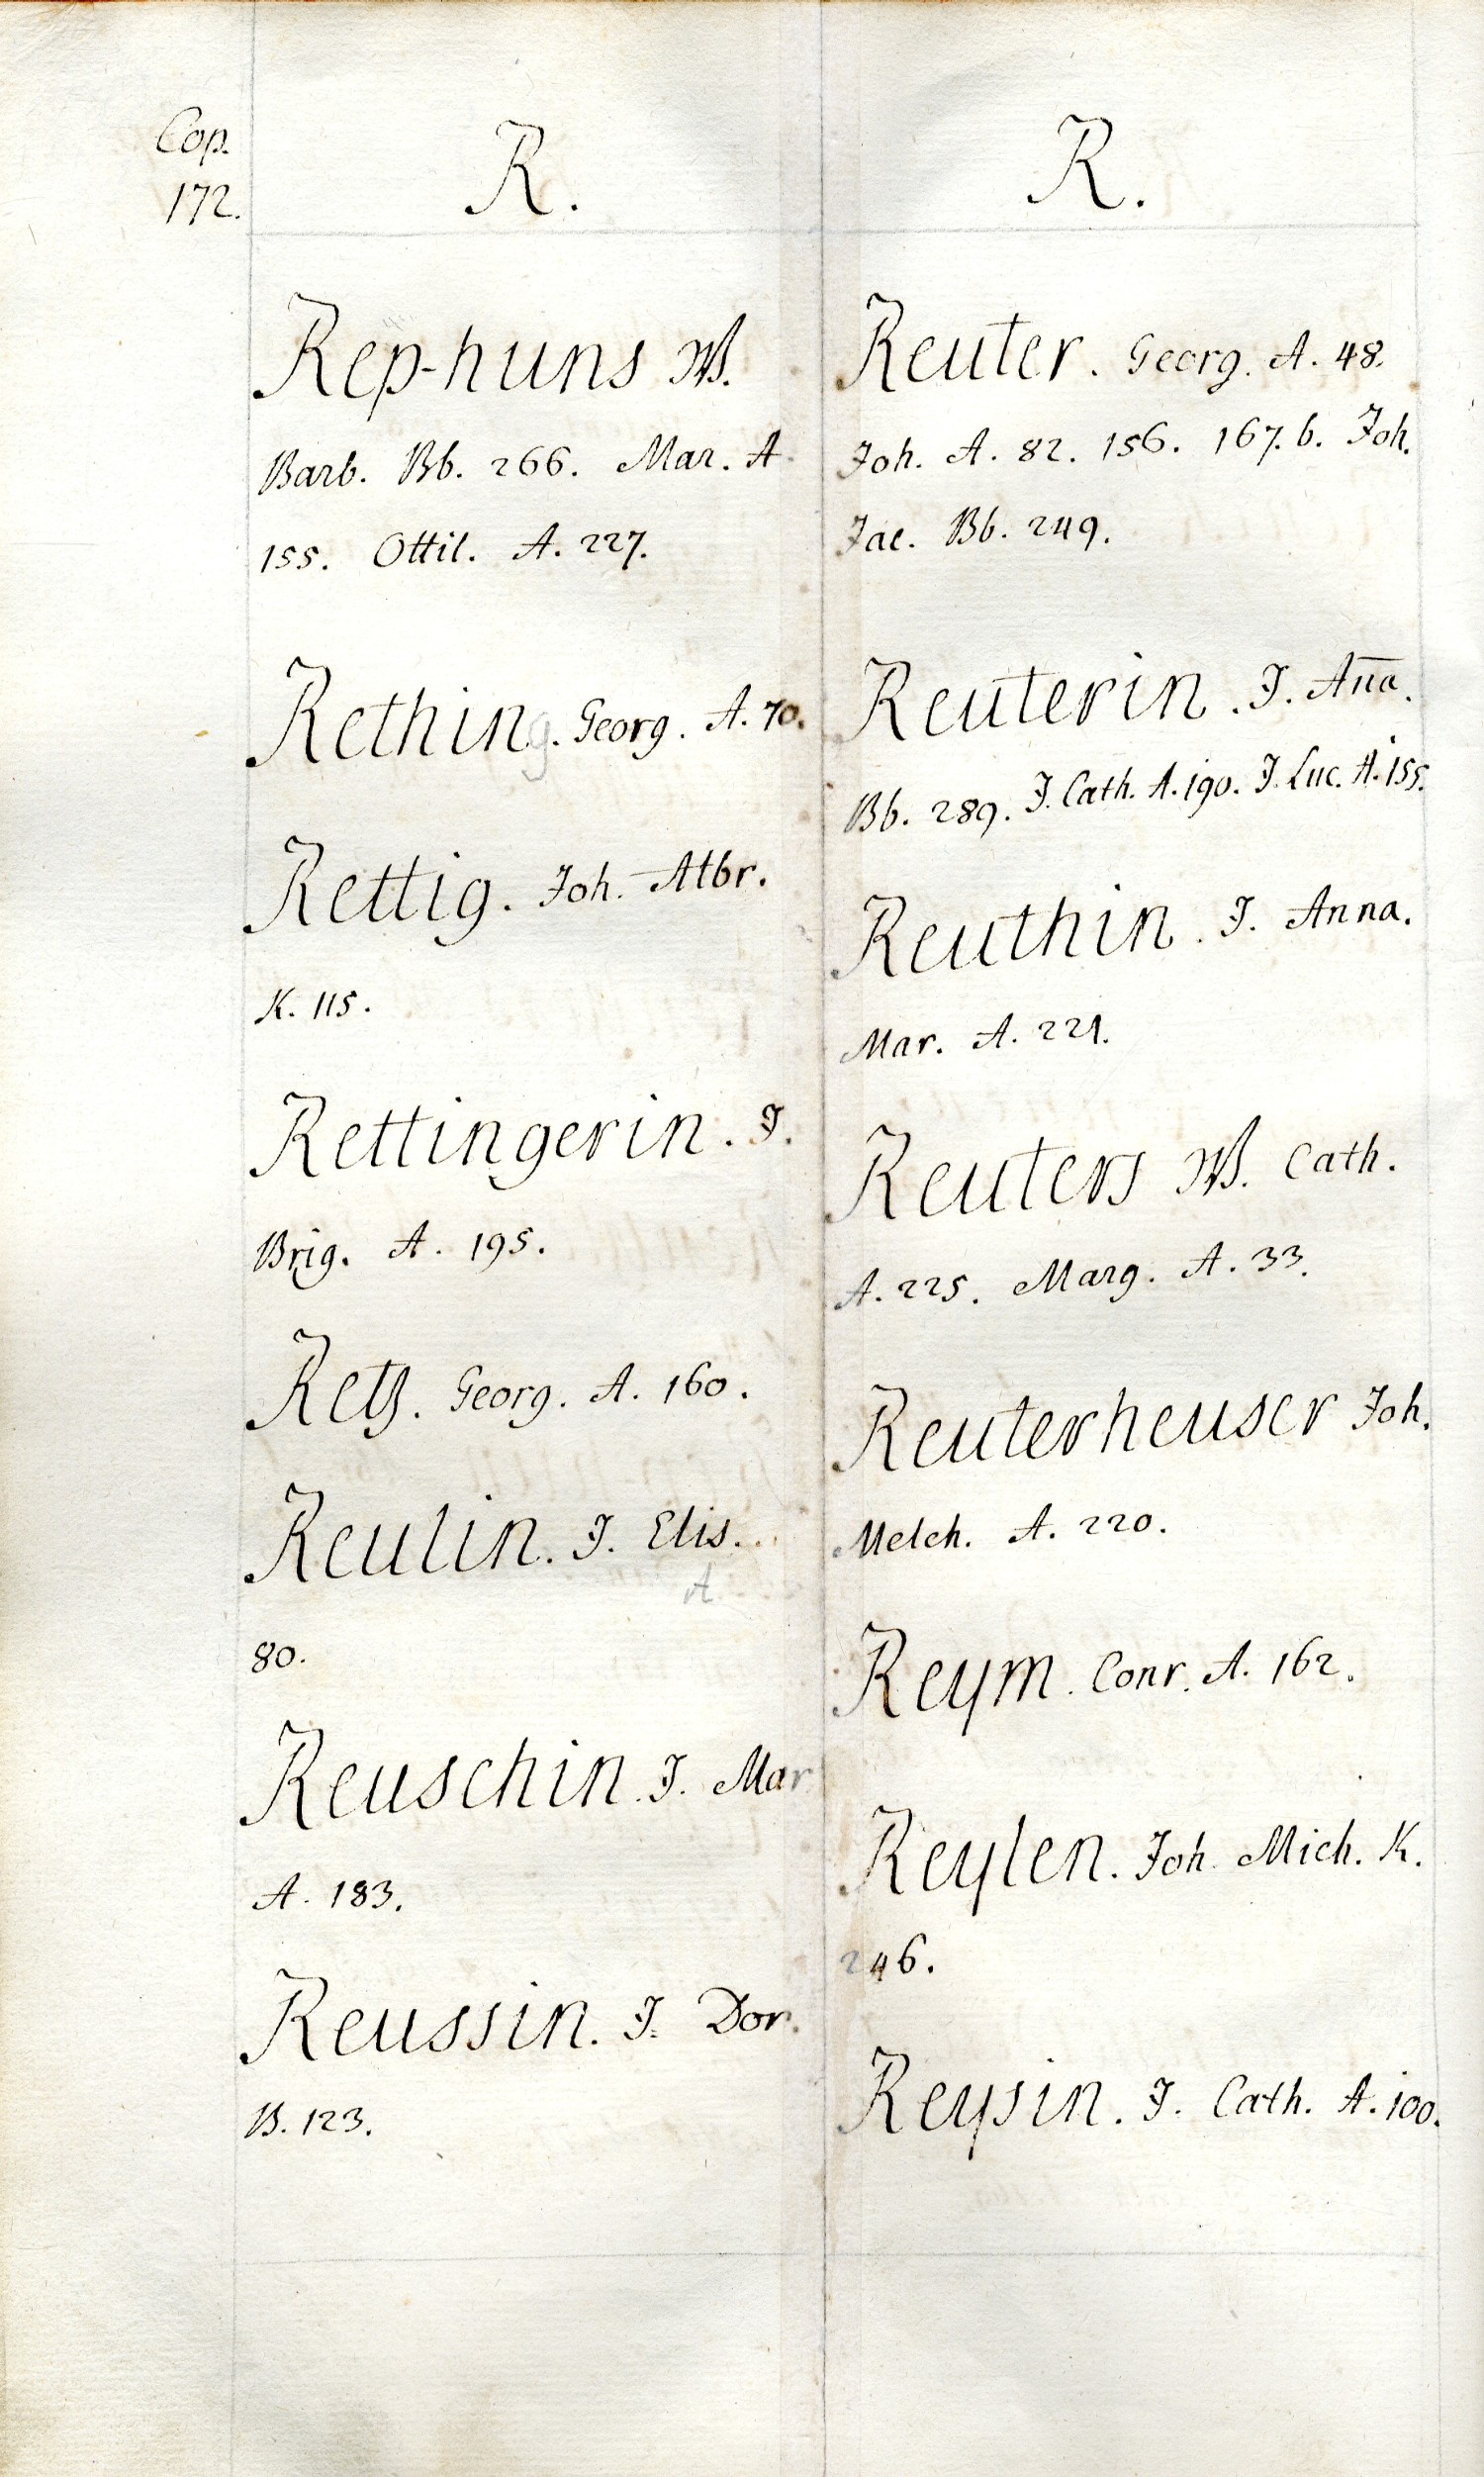 Cop.
172.
R.
Rep-huns W.
Barb. Bb. 266. Mar. A.
155. Ottil. A. 227.
Rething. Georg. A. 70.
Rettig. Joh. Albr.
K. 115.
Rettingerin. J.
Brig. A. 195.
Retz. Georg. A. 160.
Reulin. J. Elis.
A
80.
Reuschin. J. Mar
A. 183.
Reussin. J. Dor.
B. 123.
R.
Reuter. Georg. A. 48.
Joh. A. 82. 156. 167. b. Joh.
Jac. Bb. 249.
Reuterin. J. Ana̅.
Bb. 289. J. Cath. A. 190. J. Luc. A. 155.
Reuthin. J. Anna.
Mar. A. 221.
Reuters W. Cath.
A. 225. Marg. A. 33.
Reuterheuser Joh.
Melch. A. 220.
Reym. Conr. A. 162.
Reylen. Joh. Mich. K.
246.
Reysin. J. Cath. A. 100.